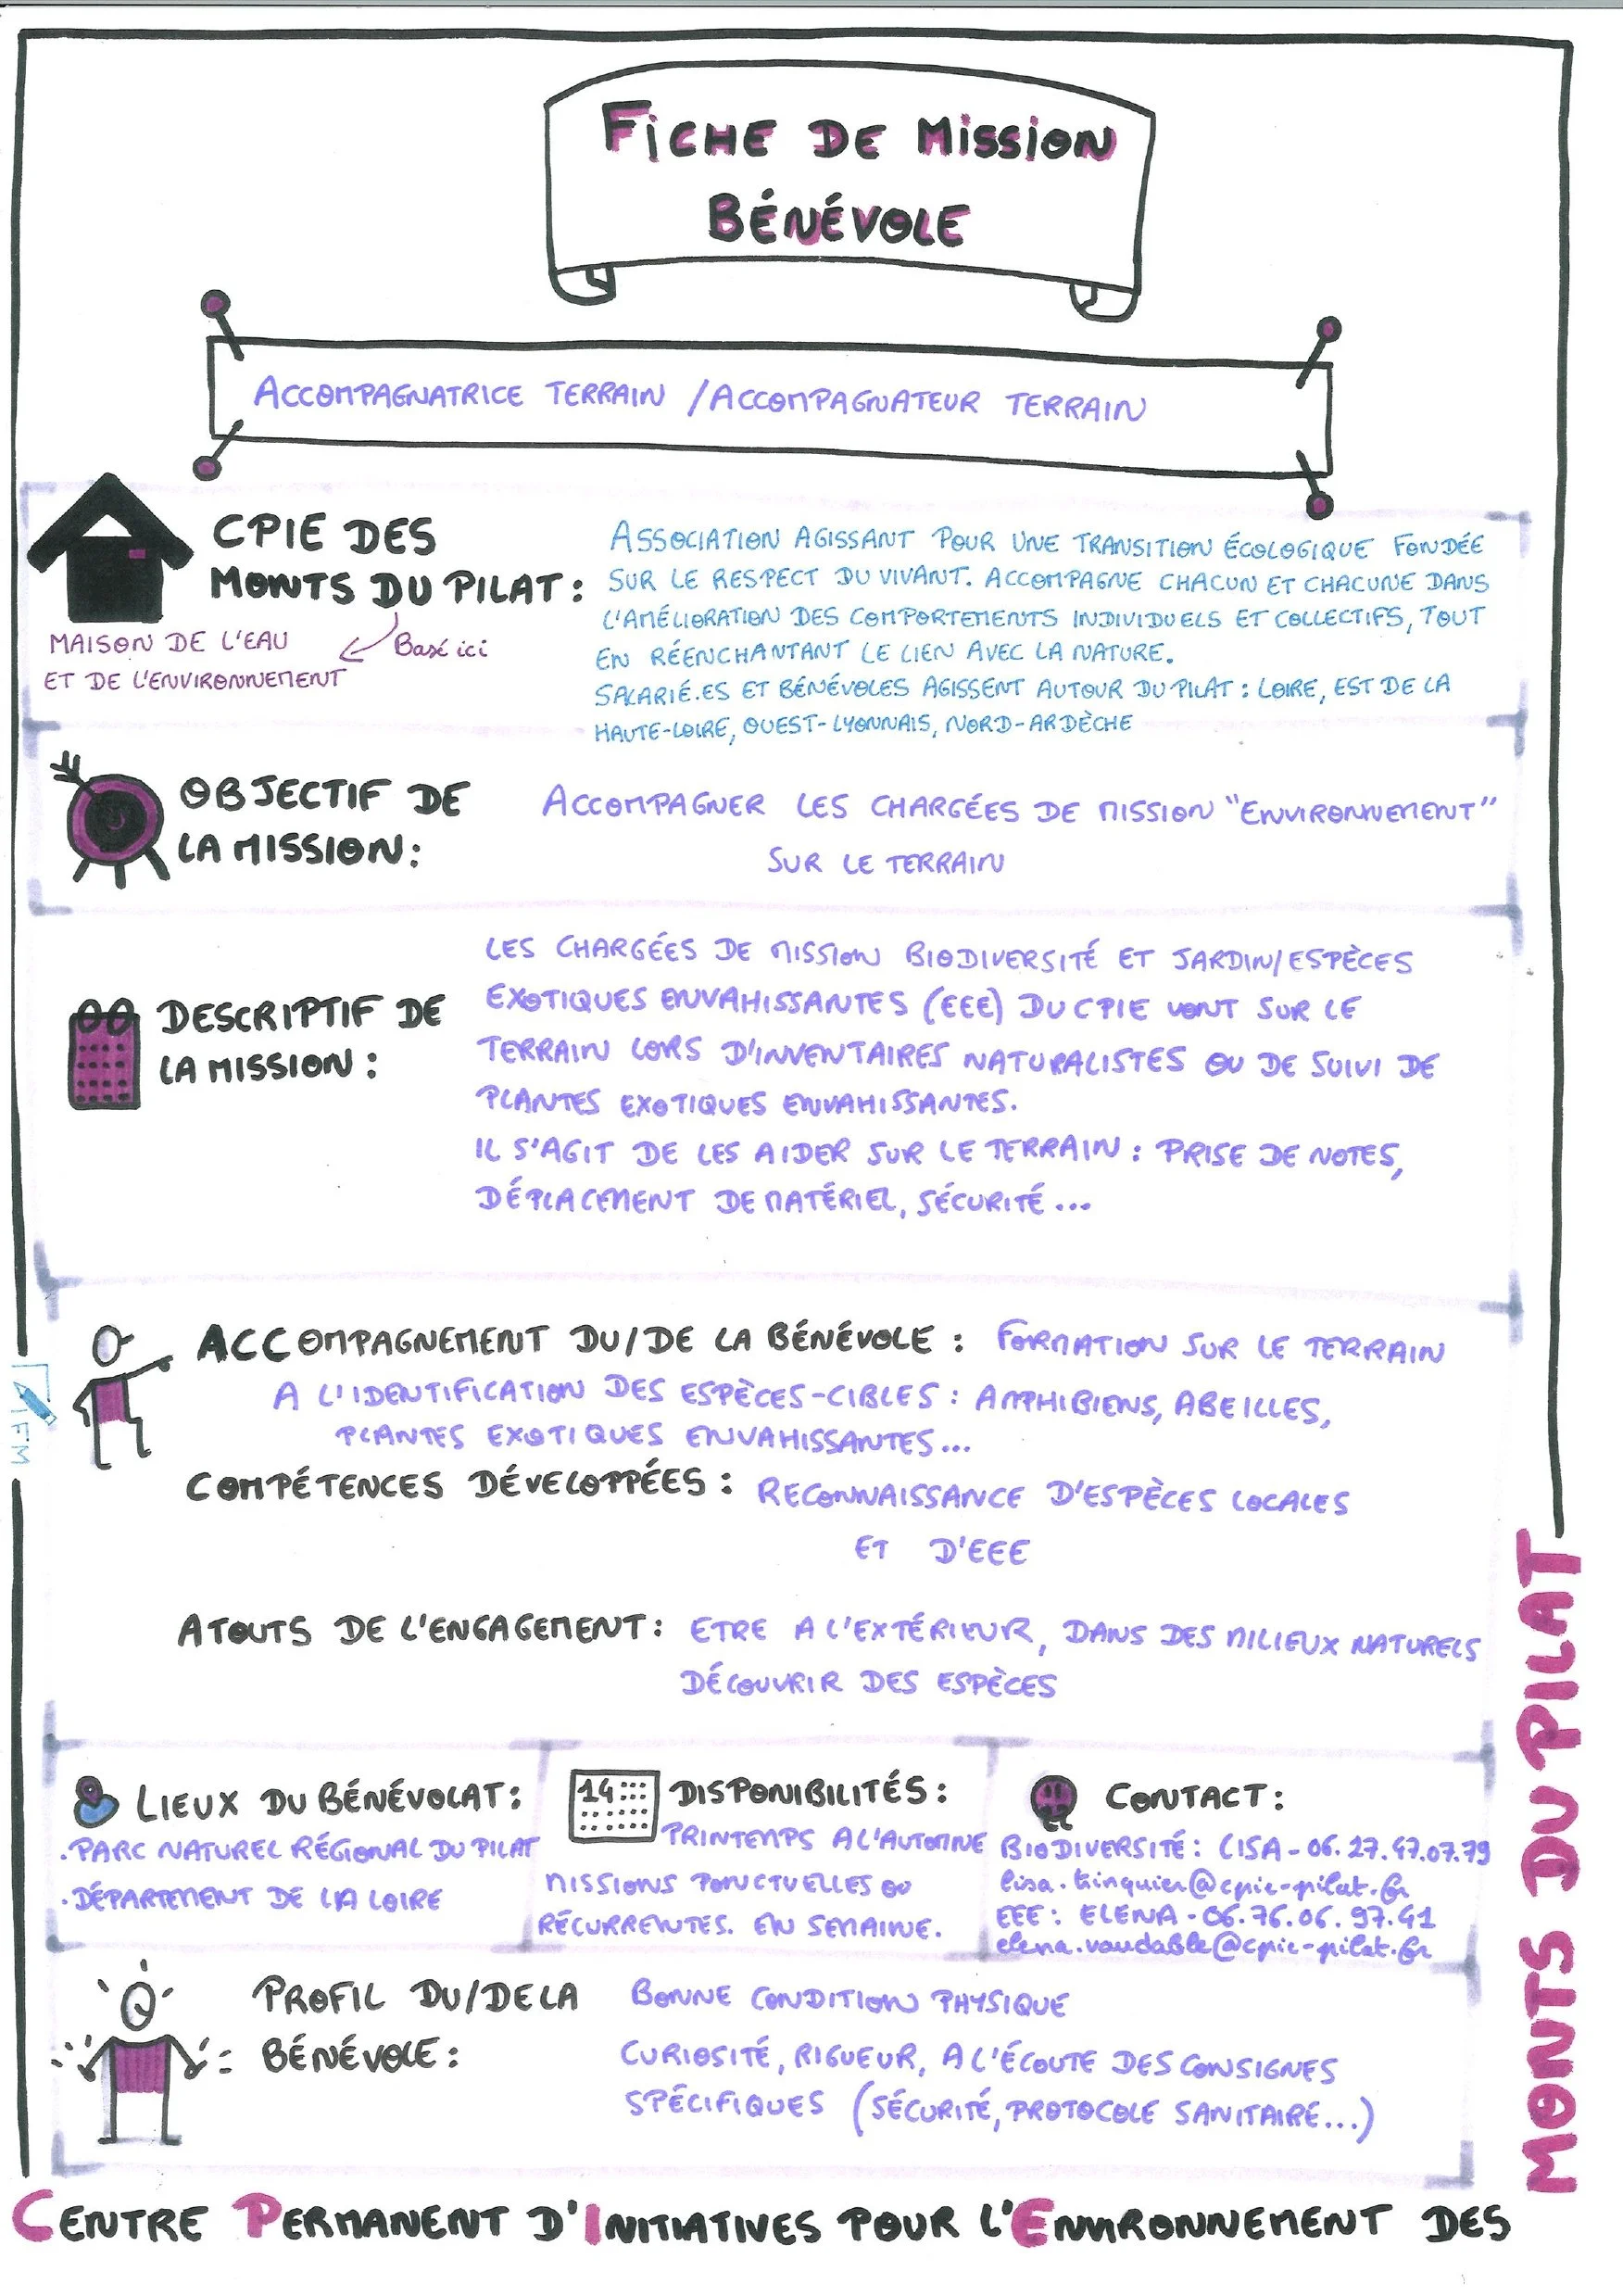 FICHE DE MISSION
BÉNÉVOLE
ACCOMPAGNATRICE TERRAIN / ACCOMPAGNATEUR TERRAIN
CPIE DES
MONTS DU PILAT :
MAISON DE L'EAU
ET DE L'ENVIRONNEMENT
Basé ici
ASSOCIATION AGISSANT POUR UNE TRANSITION ÉCOLOGIQUE FONDÉE
SUR LE RESPECT DU VIVANT. ACCOMPAGNE CHACUN ET CHACUNE DANS
L'AMÉLIORATION DES COMPORTEMENTS INDIVIDUELS ET COLLECTIFS, TOUT
EN RÉENCHANTANT LE LIEN AVEC LA NATURE.
SALARIÉ.ES ET BÉNÉVOLES AGISSENT AUTOUR DU PILAT : LOIRE, EST DE LA
HAUTE-LOIRE, OUEST-LYONNAIS, NORD-ARDÈCHE
OBJECTIF DE
LA MISSION :
ACCOMPAGNER LES CHARGÉES DE MISSION "ENVIRONNEMENT"
SUR LE TERRAIN
DESCRIPTIF DE
LA MISSION :
LES CHARGÉES DE MISSION BIODIVERSITÉ ET JARDIN/ESPÈCES
EXOTIQUES ENVAHISSANTES (EEE) DU CPIE VONT SUR LE
TERRAIN LORS D'INVENTAIRES NATURALISTES OU DE SUIVI DE
PLANTES EXOTIQUES ENVAHISSANTES.
IL S'AGIT DE LES AIDER SUR LE TERRAIN : PRISE DE NOTES,
DÉPLACEMENT DE MATÉRIEL, SÉCURITÉ...
ACCOMPAGNEMENT DU/DE LA BÉNÉVOLE : FORMATION SUR LE TERRAIN
A L'IDENTIFICATION DES ESPÈCES-CIBLES : AMPHIBIENS, ABEILLES,
PLANTES EXOTIQUES ENVAHISSANTES...
IFM
COMPÉTENCES DÉVELOPPÉES : RECONNAISSANCE D'ESPÈCES LOCALES
ET D'EEE
ATOUTS DE L'ENGAGEMENT : ETRE A L'EXTÉRIEUR, DANS DES MILIEUX NATURELS
DÉCOUVRIR DES ESPÈCES
LIEUX DU BÉNÉVOLAT :
. PARC NATUREL RÉGIONAL DU PILAT
. DÉPARTEMENT DE LA LOIRE
14
DISPONIBILITÉS :
PRINTEMPS A L'AUTOMNE
MISSIONS PONCTUELLES OU
RÉCURRENTES. EN SEMAINE.
CONTACT :
BIODIVERSITÉ : LISA - 06.27.47.07.79
lisa.trinquier@cpie-pilat.fr
EEE : ELENA - 06.76.06.97.41
elena.vaudable@cpie-pilat.fr
PROFIL DU/DE LA
BÉNÉVOLE :
BONNE CONDITION PHYSIQUE
CURIOSITÉ, RIGUEUR, A L'ÉCOUTE DES CONSIGNES
SPÉCIFIQUES (SÉCURITÉ, PROTOCOLE SANITAIRE...)
CENTRE PERMANENT D'INITIATIVES POUR L'ENVIRONNEMENT DES
MONTS DU PILAT